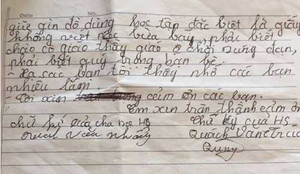 giữ gìn đồ dùng học tập đặc biệt là giấy
không viết bừa bãy, phải biết
chào cô giáo thầy giáo ở mọi
phải biết quý trọng bạn bè
- Xa các bạn tôi thấy nhớ các bạn
nhiều lắm.
Tôi xin cảm ơn các bạn.
Em xin trân thành cảm ơn
chữ kí của cha mẹ HS
Chữ ký của HS
Quách Văn
Quách Văn